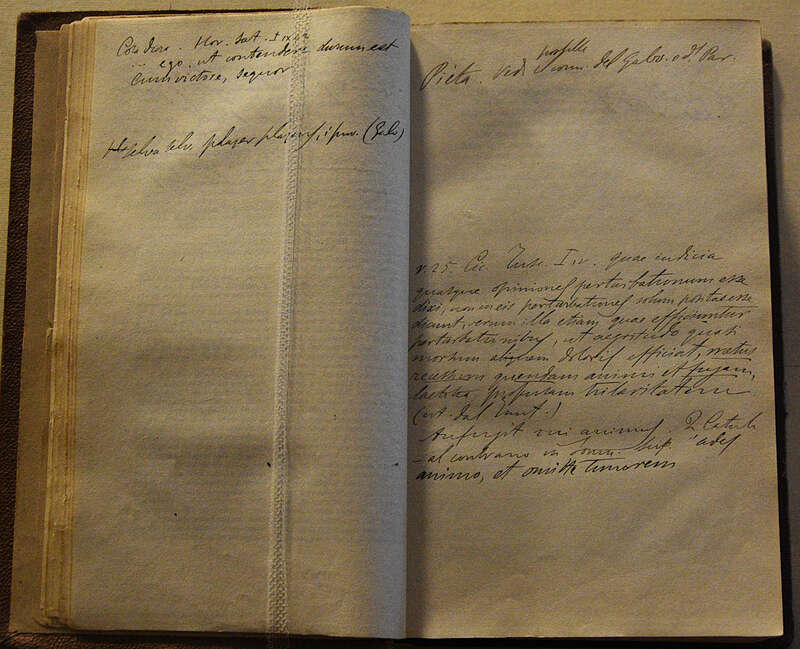 Hor. Sat. I ix 42
... ego, ut contendere durum est
cum victore, sequor
selva selv.
Pieta. vedi
del Gabr. o d. Par.
v. 25. Cic. Tusc. I v. quae iudicia
quasque opiniones perturbationum esse
dixi, non in eis perturbationes solum positas esse
dicunt, verum illa etiam quae efficiuntur
perturbationibus, ut aegritudo quasi
morsum aliquem doloris efficiat, metus
recessum quendam animi et fugam,
laetitia profusam hilaritatem
Aufugit mi animus. Q. Catulo
al contrario in Somn. Scip. "ades
animo, et omitte timorem